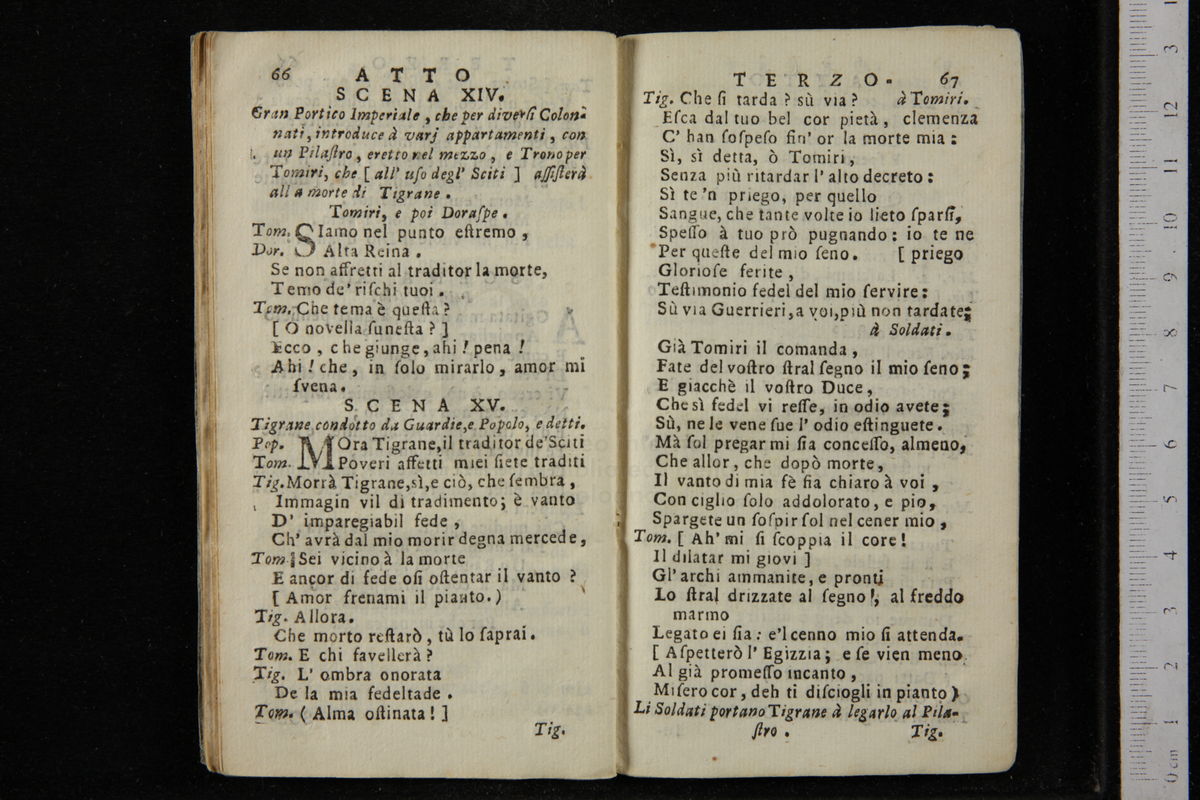 66 ATTO
SCENA XIV.
Gran Portico Imperiale, che per diverſi Colon-
nati, introduce à varj appartamenti, con
un Pilaſtro, eretto nel mezzo, e Trono per
Tomiri, che [ all' uſo degl' Sciti ] aſſiſterà
all a morte di Tigrane.
Tomiri, e poi Doraſpe.
Tom. SIamo nel punto eſtremo,
Dor. Alta Reina.
Se non affretti al traditor la morte,
Temo de' riſchi tuoi.
Tom. Che tema è queſta?
[ O novella funeſta? ]
Ecco, che giunge, ahi! pena!
Ahi! che, in ſolo mirarlo, amor mi
ſvena.
SCENA XV.
Tigrane condotto da Guardie, e Popolo, e detti.
Pop. MOra Tigrane, il traditor de' Sciti
Tom. Poveri affetti miei ſiete traditi
Tig. Morrà Tigrane, sì, e ciò, che ſembra,
Immagin vil di tradimento; è vanto
D' impareggiabil fede,
Ch' avrà dal mio morir degna mercede,
Tom. Sei vicino à la morte
E ancor di fede oſi oſtentar il vanto?
[ Amor frenami il pianto. )
Tig. Allora.
Che morto reſtarò, tù lo ſaprai.
Tom. E chi favellerà?
Tig. L' ombra onorata
De la mia fedeltade.
Tom. ( Alma oſtinata! ]
Tig.
TERZO. 67
Tig. Che ſi tarda? sù via? à Tomiri.
Eſca dal tuo bel cor pietà, clemenza
C' han ſoſpeſo ſin' or la morte mia:
Sì, sì detta, ò Tomiri,
Senza più ritardar l' alto decreto:
Sì te 'n priego, per quello
Sangue, che tante volte io lieto ſparſi,
Speſſo à tuo prò pugnando: io te ne
Per queſte del mio ſeno. [ priego
Glorioſe ferite,
Teſtimonio fedel del mio ſervire:
Sù via Guerrieri, a voi, più non tardate;
à Soldati.
Già Tomiri il comanda,
Fate del voſtro ſtral ſegno il mio ſeno;
E giacchè il voſtro Duce,
Che sì fedel vi reſſe, in odio avete;
Sù, ne le vene ſue l' odio eſtinguete.
Mà ſol pregar mi ſia conceſſo, almeno,
Che allor, che dopò morte,
Il vanto di mia fè ſia chiaro à voi,
Con ciglio ſolo addolorato, e pio,
Spargete un ſoſpir ſol nel cener mio,
Tom. [ Ah' mi ſi ſcoppia il core!
Il dilatar mi giovi ]
Gl' archi ammanite, e pronti
Lo ſtral drizzate al ſegno!, al freddo
marmo
Legato ei ſia: e'l cenno mio ſi attenda.
[ Aſpetterò l' Egizzia; e ſe vien meno
Al già promeſſo incanto,
Miſero cor, deh ti diſciogli in pianto )
Li Soldati portano Tigrane à legarlo al Pila-
ſtro. Tig.